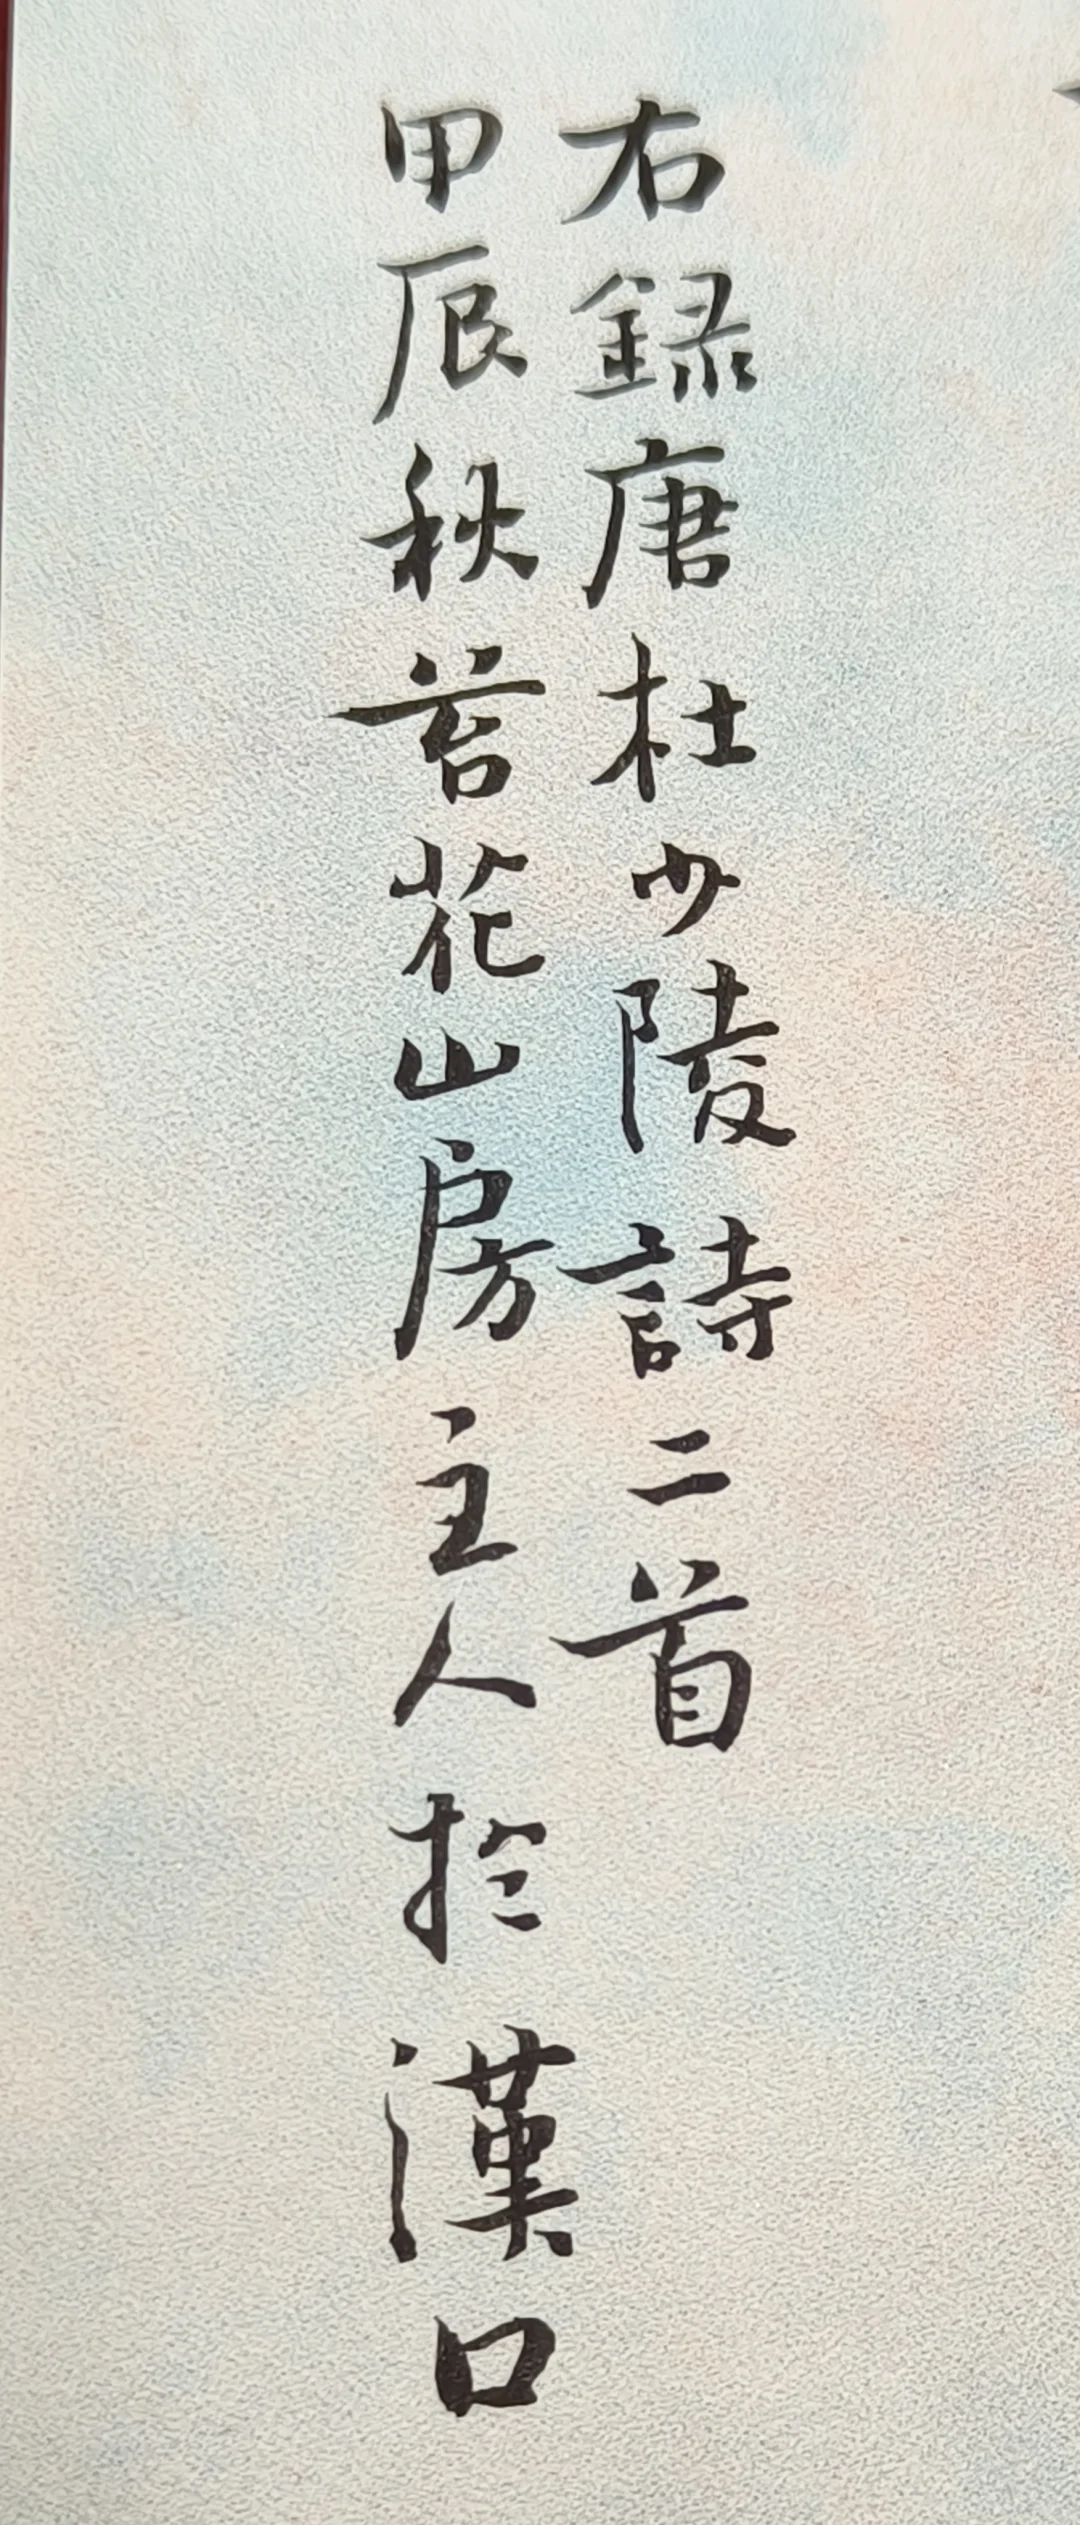 右録唐杜少陵詩二首
甲辰秋苔花山房主人扵漢口